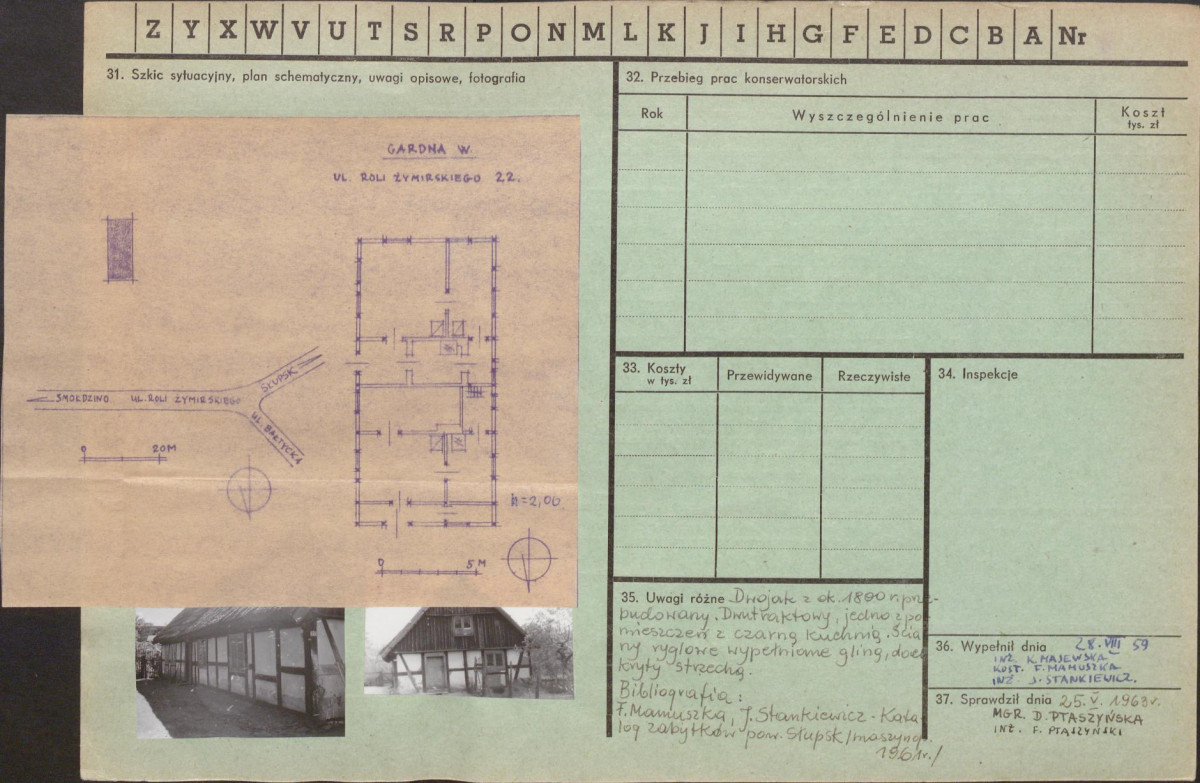 Z Y X W V U T S R P O N M L K J I H G F E D C B A Nr
31. Szkic sytuacyjny, plan schematyczny, uwagi opisowe, fotografia
GARDNA W.
UL. ROLI ŻYMIRSKIEGO 22.
SŁUPSK
SMOŁDZINO UL. ROLI ŻYMIRSKIEGO
UL. BAŁTYCKA
0 20M
h=2,00
0 5M
32. Przebieg prac konserwatorskich
Rok Wyszczególnienie prac Koszt
tys. zł
33. Koszty
w tys. zł
Przewidywane Rzeczywiste
34. Inspekcje
35. Uwagi różne Dwojak z ok. 1800 r. prze-
budowany. Dwutraktowy, jedno z po
mieszczeń z czarną kuchnią. Ścia
ny ryglowe wypełnione gliną, dach
kryty strzechą.
Bibliografia:
F. Mamuszka, J. Stankiewicz - Kata
log zabytków pow. Słupsk /maszynop.
1961r./
36. Wypełnił dnia 28. VIII 59
INŻ. K. MAJEWSKA
KUST. F. MAMUSZKA
INŻ J. STANKIEWICZ.
37. Sprawdził dnia 25. V. 1963 r.
MGR. D. PTASZYŃSKA
INŻ. F. PTASZYŃSKI